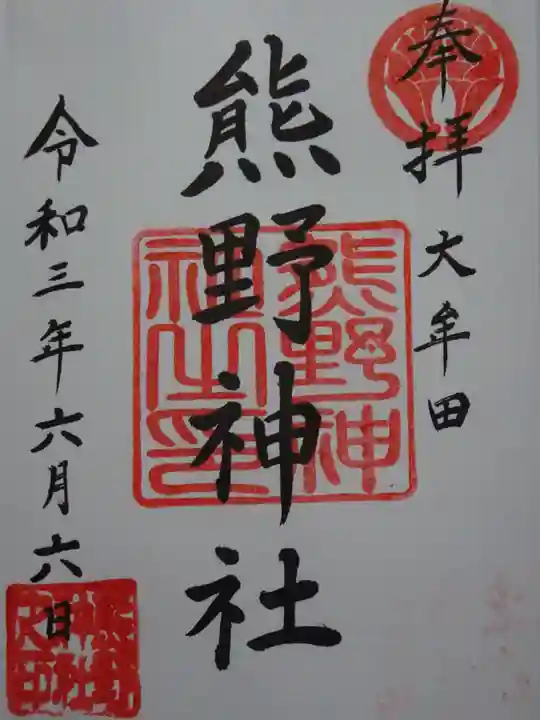 奉拝 大牟田
熊野神社
熊野神社之印
令和三年六月六日